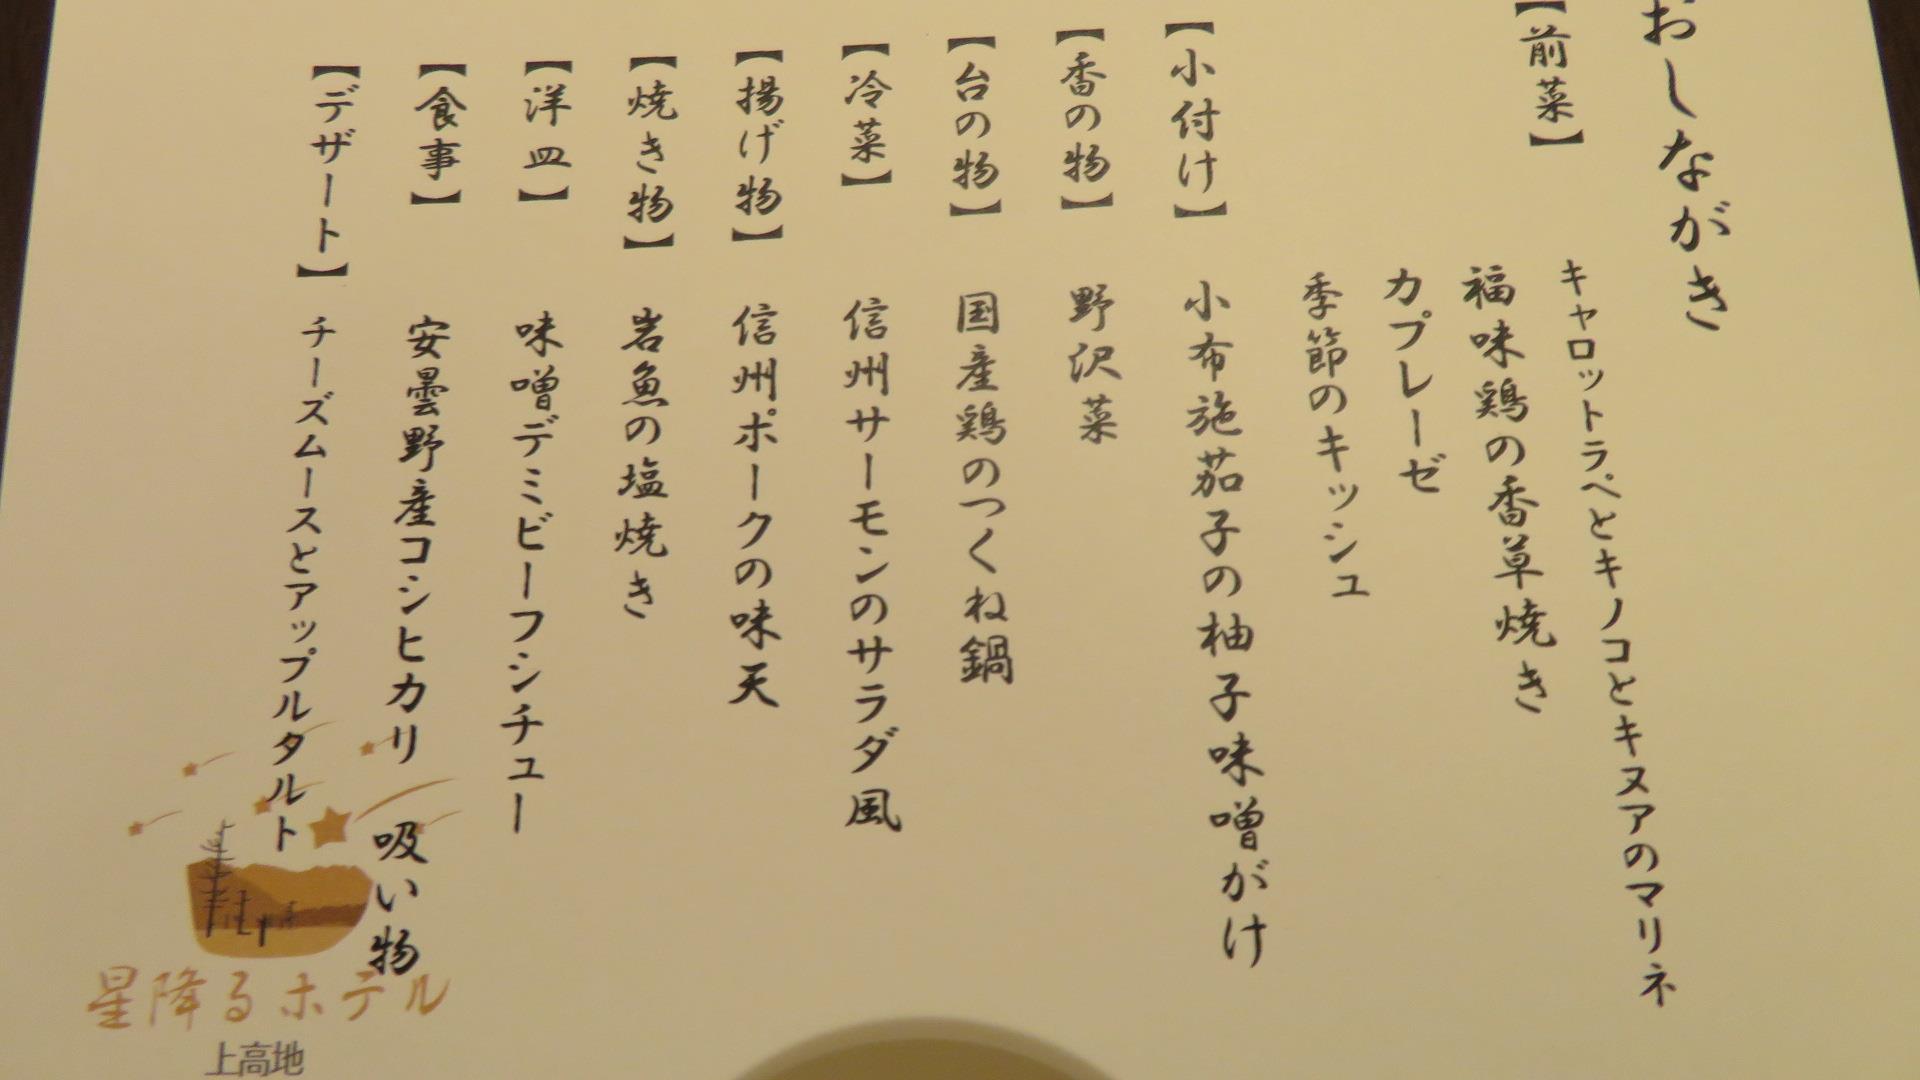 おしながき
【前菜】 キャロットラペとキノコとキヌアのマリネ
福味鶏の香草焼き
カプレーゼ
季節のキッシュ
【小付け】 小布施茄子の柚子味噌がけ
【香の物】 野沢菜
【台の物】 国産鶏のつくね鍋
【冷菜】 信州サーモンのサラダ風
【揚げ物】 信州ポークの味天
【焼き物】 岩魚の塩焼き
【洋皿】 味噌デミビーフシチュー
【食事】 安曇野産コシヒカリ 吸い物
【デザート】 チーズムースとアップルタルト
星降るホテル
上高地